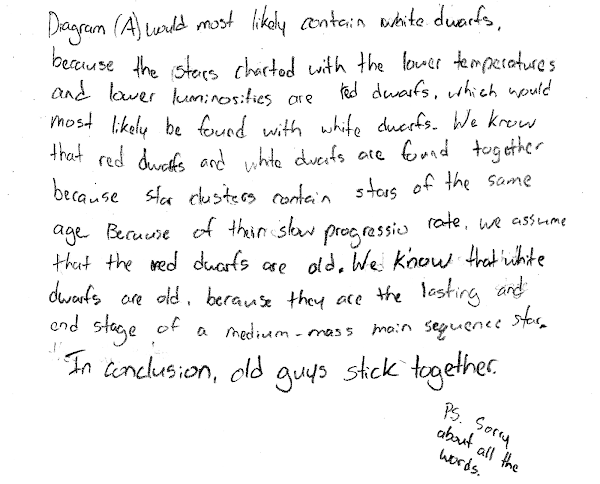 Diagram (A) would most likely contain white dwarfs,
because the stars charted with the lower temperatures
and lower luminosities are red dwarfs, which would
most likely be found with white dwarfs. We know
that red dwarfs and white dwarfs are found together
because star clusters contain stars of the same
age. Because of their slow progressio rate, we assume
that the red dwarfs are old. We know that white
dwarfs are old, because they are the lasting and
end stage of a medium-mass main sequence star.
In conclusion, old guys stick together.
PS. Sorry
about all the
words.